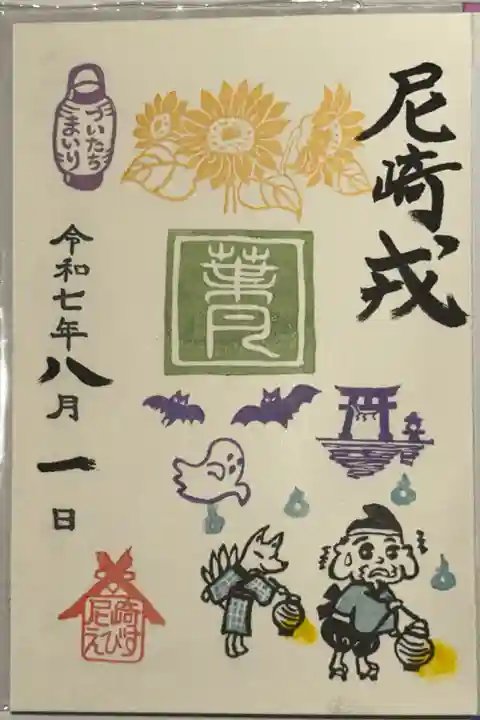 尼崎戎
づいたち
まいり
葉月
令和七年八月一日
尼崎
えびす